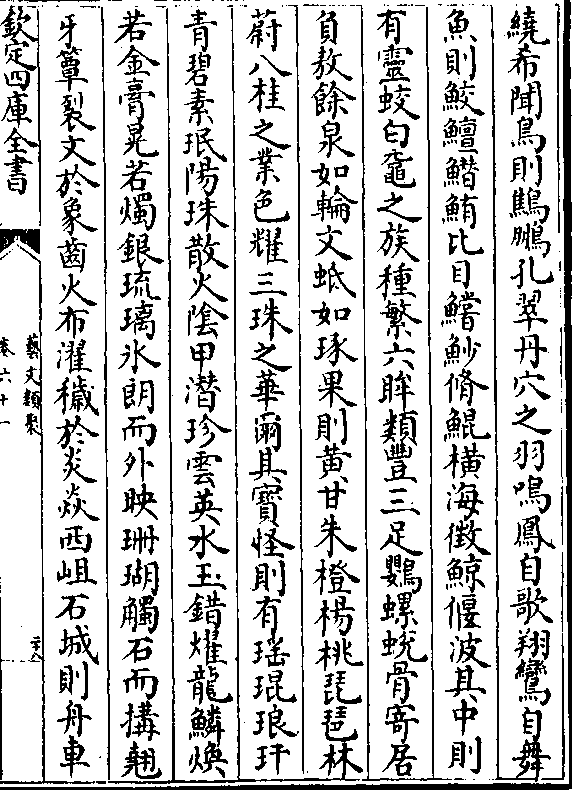 繞希聞鳥則鷦鵬孔翠丹穴之羽鳴鳳自歌翔鸞自舞
魚則鮫鱣鱕鮪比目鱨魦脩鯤橫海徴鯨偃波其中則
有靈蛟白黿之族種繁六眸類豐三足鸚螺蛻骨寄居
負敖餘泉如輪文蚳如琢果則黄甘朱橙楊桃琵琶林
蔚八桂之業色耀三珠之華爾其寳怪則有瑤琨琅玕
青碧素珉陽珠散火陰甲潜珍雲英水玉錯燿龍鱗煥
若金膏晃若燭銀琉璃氷朗而外映珊瑚觸石而搆翹
牙簟裂文於象齒火布濯穢於炎焱西岨石城則舟車
欽定四庫全書
藝文類聚
卷六十一
二十八